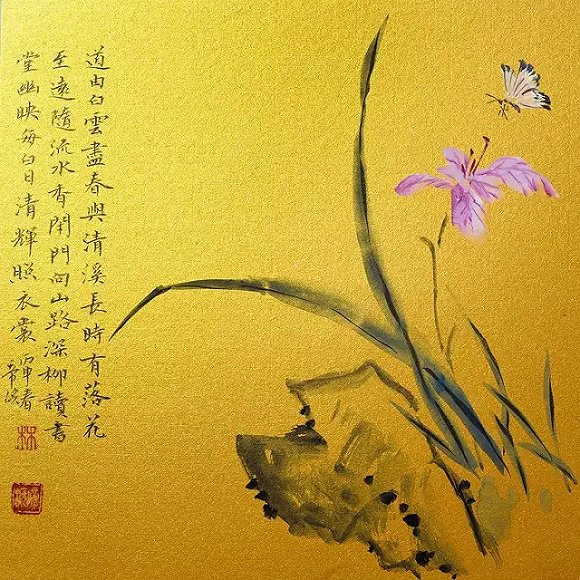 道由白雲盡春與清溪長時有落花
至遠隨流水香閑門向山路深柳讀書
堂幽映每白日清輝照衣裳
丙申春
林